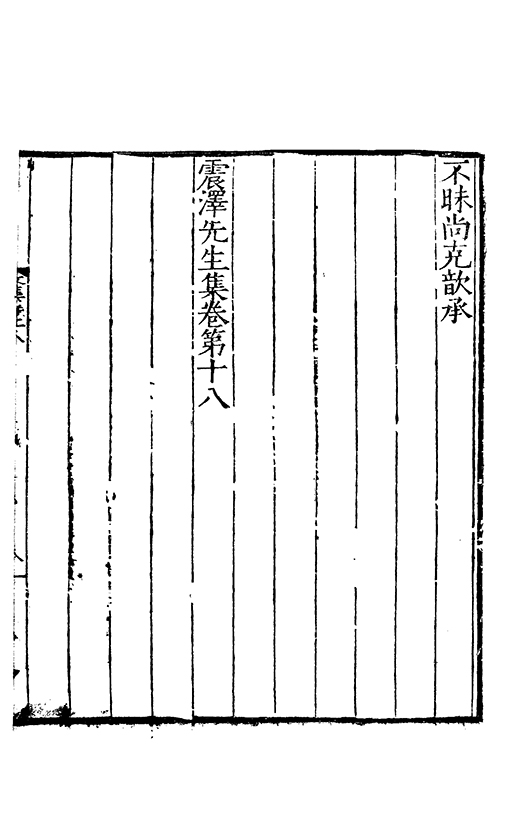 不昧尚克歆承
震澤先生集卷第十八